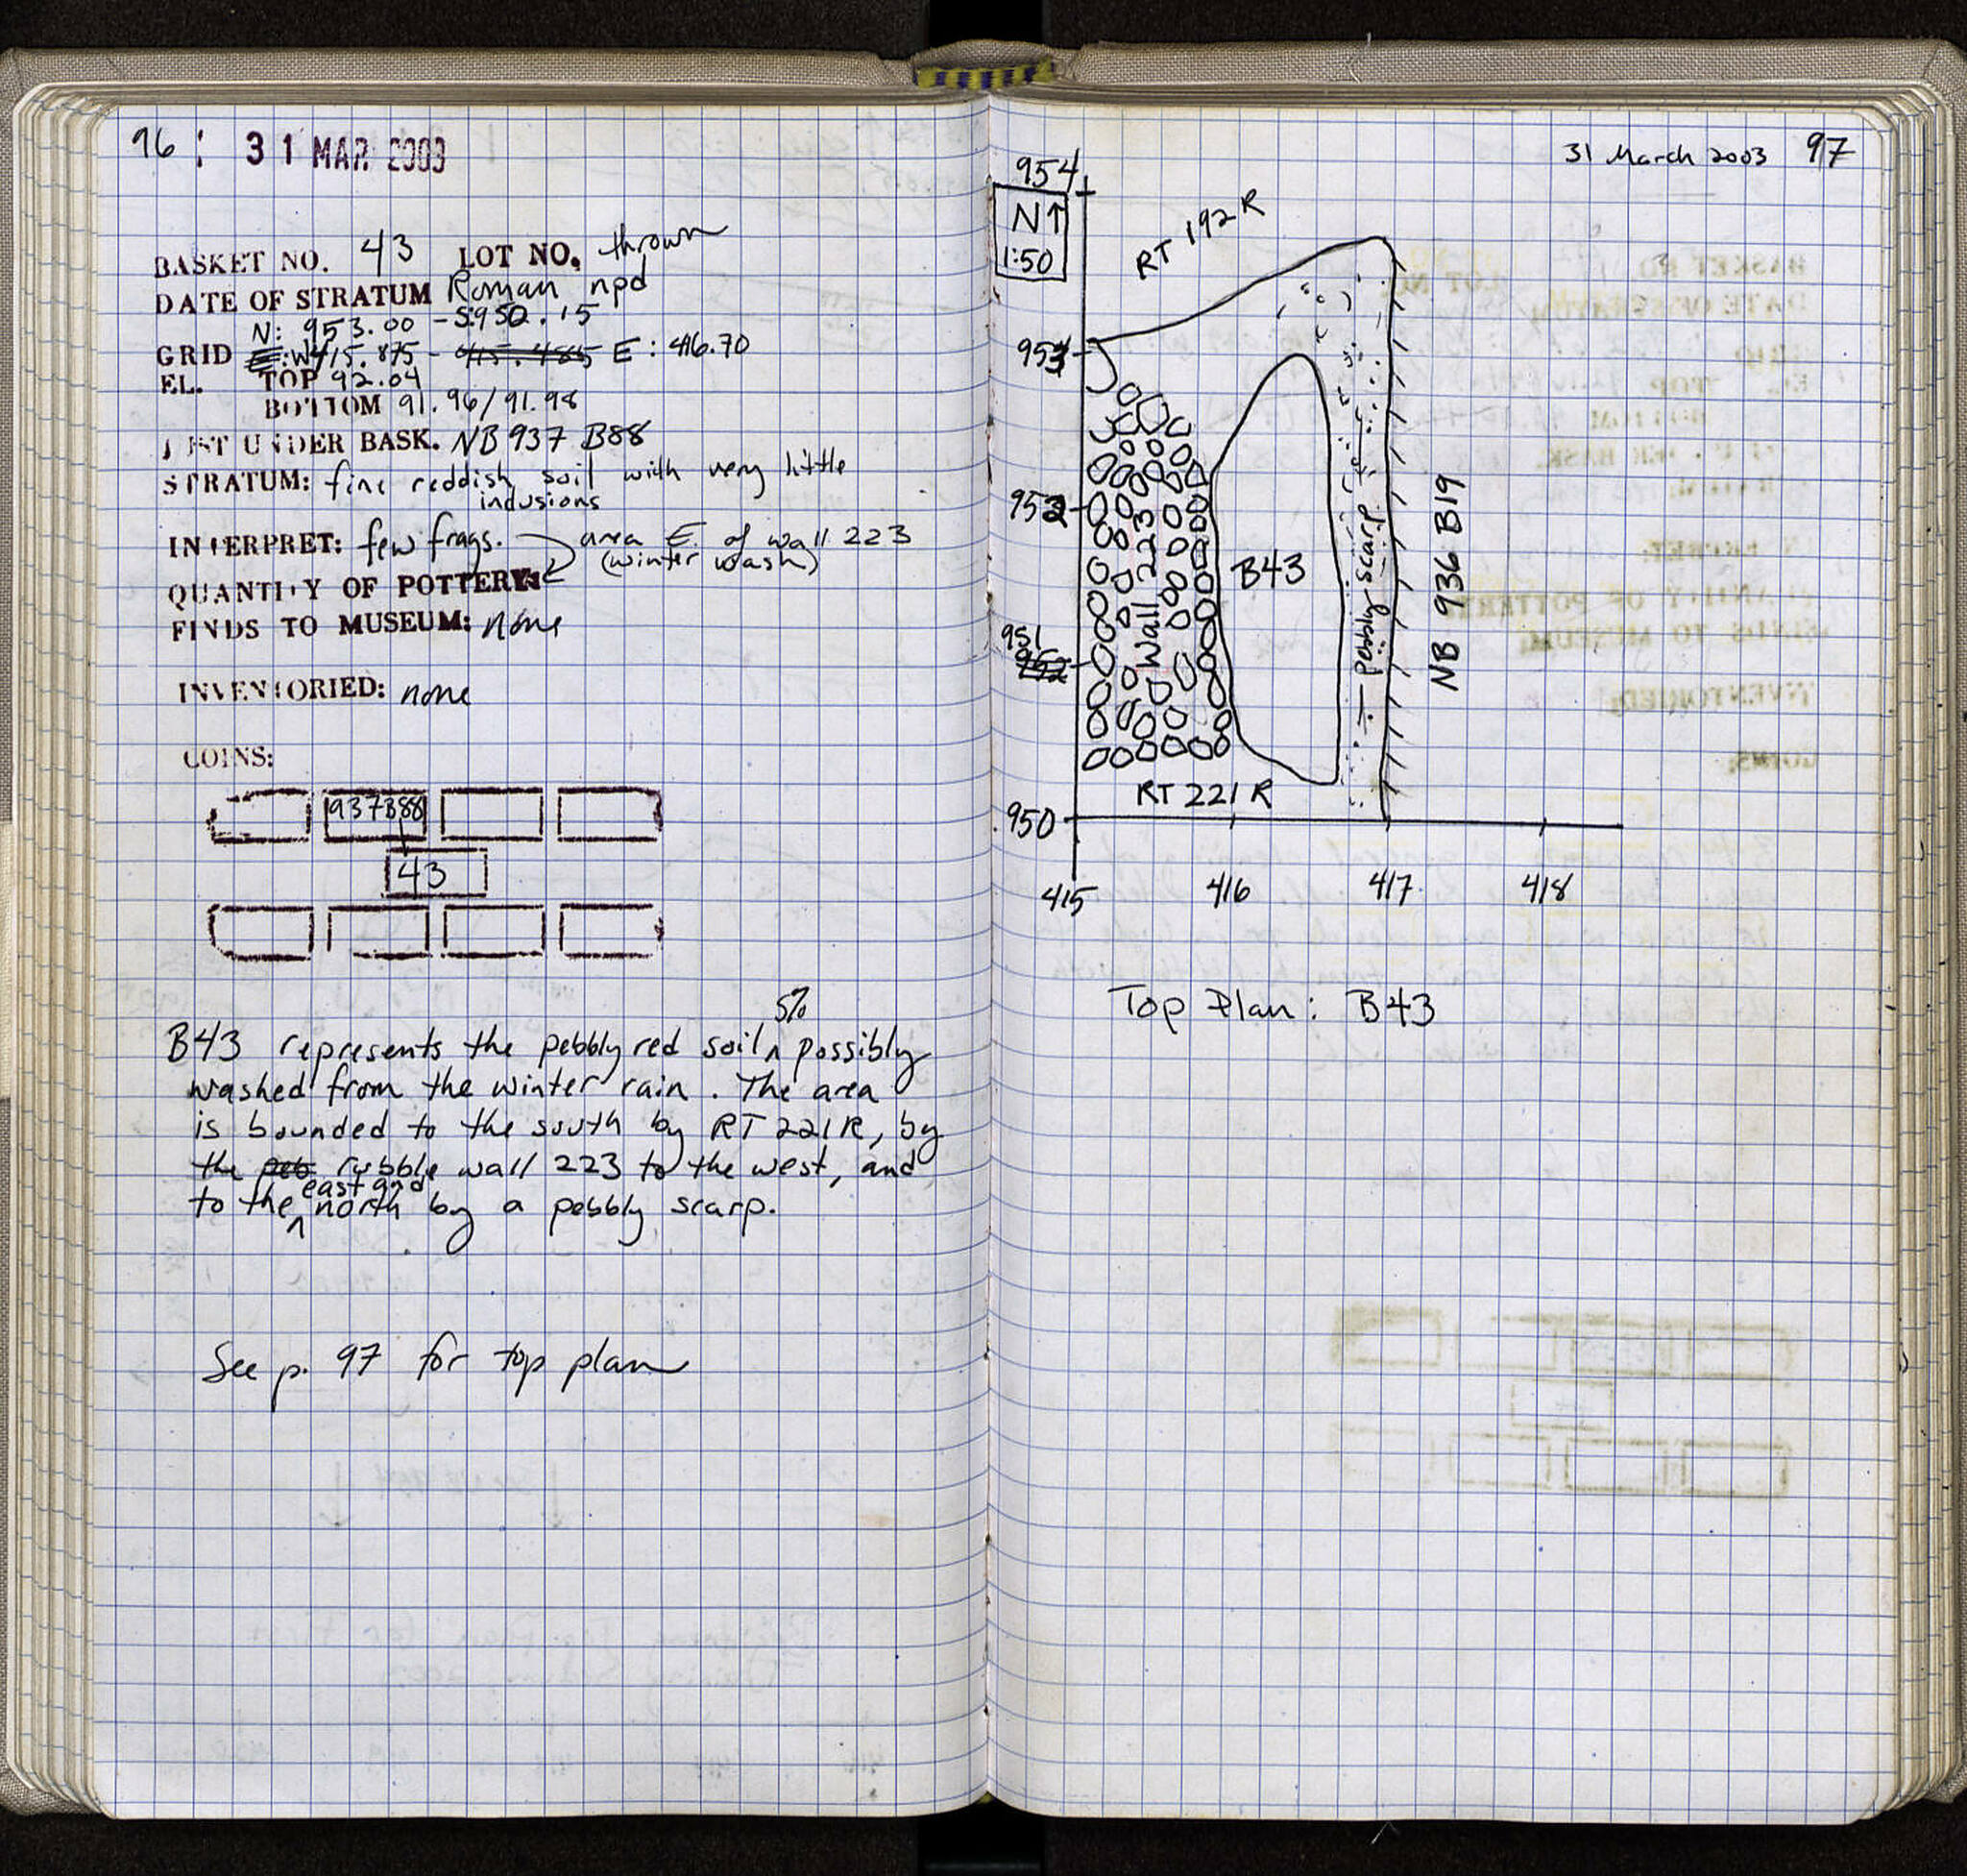 96
31 MAR 2003
BASKET NO. 43 LOT NO. thrown
DATE OF STRATUM Roman npd
N: 953.00 - S: 950.15
GRID E: W 415.875 - E: 416.70
EL. TOP 92.04
BOTTOM 91.96/91.98
JUST UNDER BASK. NB 937 B88
STRATUM: fine reddish soil with very little
inclusions
INTERPRET: few frags. area E. of wall 223
(winter wash)
QUANTITY OF POTTERY:
FINDS TO MUSEUM: none
INVENTORIED: none
COINS:
937B88
43
5%
B43 represents the pebbly red soil ^ possibly
washed from the winter rain. The area
is bounded to the south by RT 221R, by
the peb rubble wall 223 to the west, and
east and
to the ^ north by a pebbly scarp.
See p. 97 for top plan
31 March 2003 97
954
N↑
1:50
RT 192 R
953
952
951
952
950
Wall 223
B43
Pebbly scarp
NB 936 B19
RT 221 R
415 416 417 418
Top Plan: B43